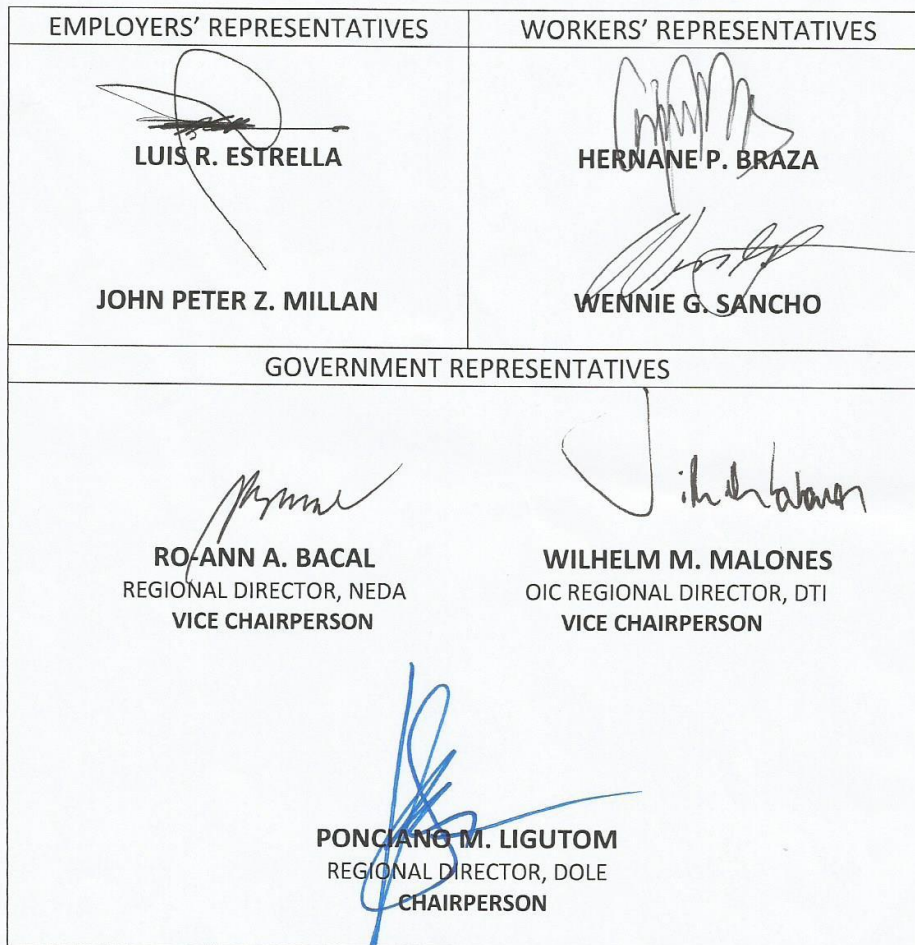 EMPLOYERS' REPRESENTATIVES
WORKERS' REPRESENTATIVES
LUIS R. ESTRELLA
HERNANE P. BRAZA
JOHN PETER Z. MILLAN
WENNIE G. SANCHO
GOVERNMENT REPRESENTATIVES
RO-ANN A. BACAL
REGIONAL DIRECTOR, NEDA
VICE CHAIRPERSON
WILHELM M. MALONES
OIC REGIONAL DIRECTOR, DTI
VICE CHAIRPERSON
PONCIANO M. LIGUTOM
REGIONAL DIRECTOR, DOLE
CHAIRPERSON